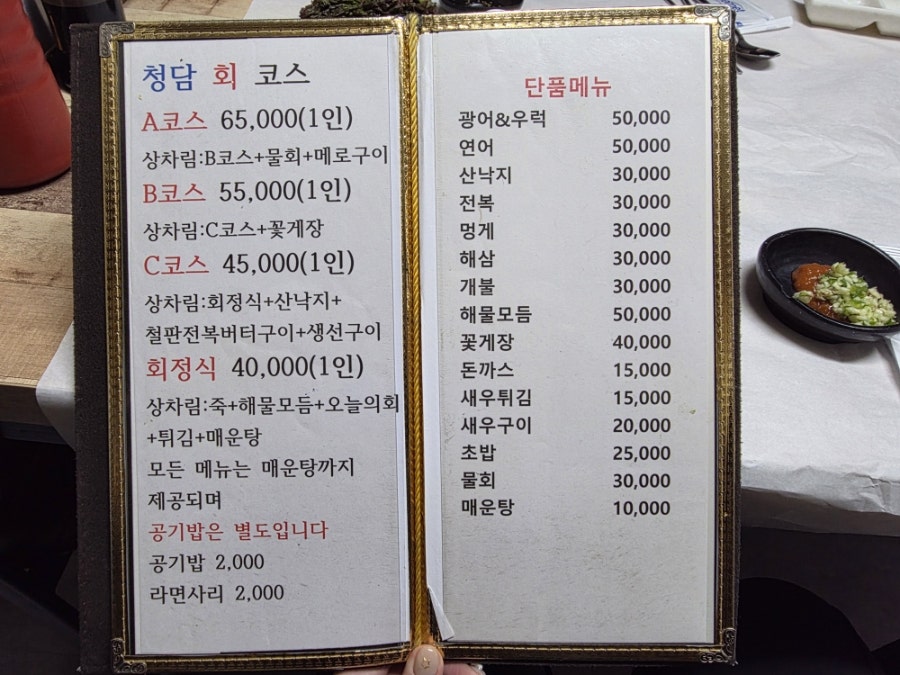 청담 회 코스
A코스 65,000(1인)
상차림:B코스+물회+메로구이
B코스 55,000(1인)
상차림:C코스+꽃게장
C코스 45,000(1인)
상차림:회정식+산낙지+
철판전복버터구이+생선구이
회정식 40,000(1인)
상차림:죽+해물모듬+오늘의회
+튀김+매운탕
모든 메뉴는 매운탕까지
제공되며
공기밥은 별도입니다
공기밥 2,000
라면사리 2,000
단품메뉴
광어&우럭 50,000
연어 50,000
산낙지 30,000
전복 30,000
멍게 30,000
해삼 30,000
개불 30,000
해물모듬 50,000
꽃게장 40,000
돈까스 15,000
새우튀김 15,000
새우구이 20,000
초밥 25,000
물회 30,000
매운탕 10,000